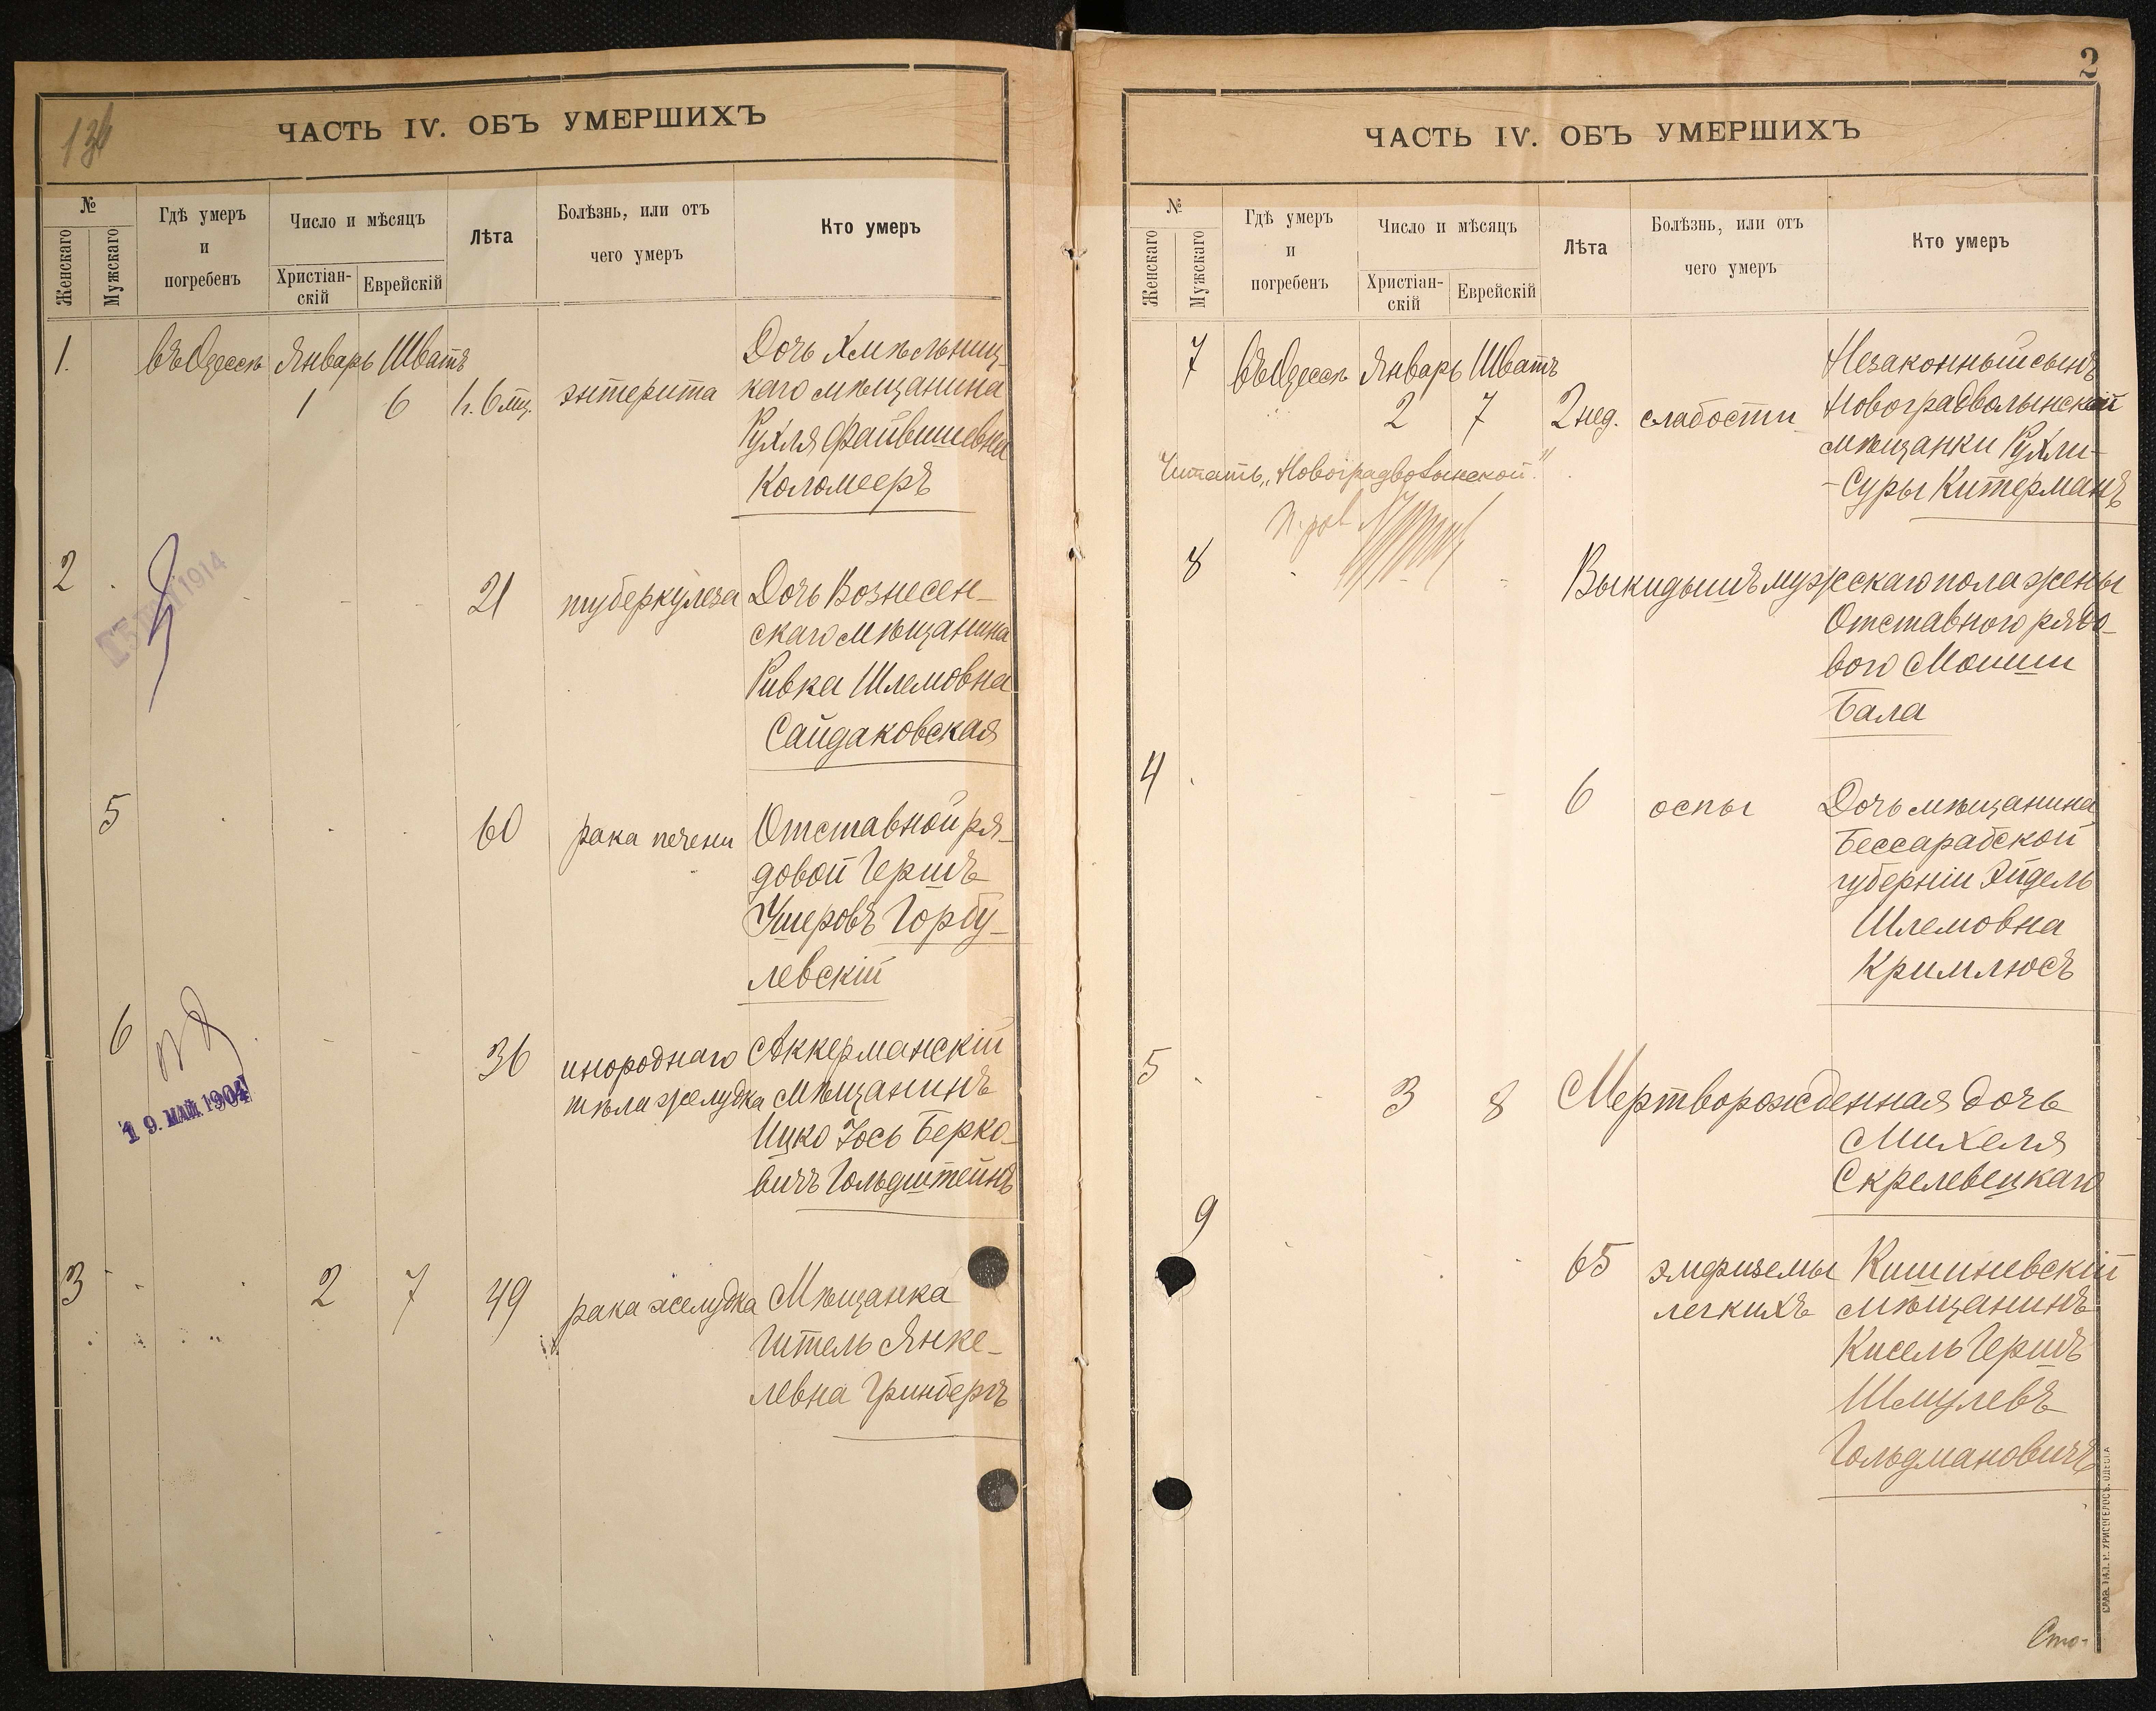 134
ЧАСТЬ IV. ОБЪ УМЕРШИХЪ
№
Женскаго
Мужскаго
Гдѣ умеръ
и
погребенъ
Число и мѣсяцъ
Христіан-
скій
Еврейскій
Лѣта
Болѣзнь, или отъ
чего умеръ
Кто умеръ
1. въ Одессѣ Январь Шватъ Дочь Хмѣльниц-
1 6 1 г. 6 мц. энтерита каго мѣщанина
Рухля Файвишевна
Коломееръ
2 21 туберкулеза Дочь Вознесен-
скаго мѣщанина
Ривка Шлемовна
Сайдаковская
1914
5 60 рака печени Отставной ря-
довой Гершъ
Ушеровъ Горбу-
левскій
6 36 инороднаго Аккерманскій
тѣла желудка мѣщанинъ
Ицко Іось Берко-
вичъ Гольдштейнъ
19. МАЙ 1904
3 2 7 49 рака желудка Мѣщанка
Гитель Янке-
левна Гринбергъ
2
ЧАСТЬ IV. ОБЪ УМЕРШИХЪ
№
Женскаго
Мужскаго
Гдѣ умеръ
и
погребенъ
Число и мѣсяцъ
Христіан-
скій
Еврейскій
Лѣта
Болѣзнь, или отъ
чего умеръ
Кто умеръ
7 въ Одессѣ Январь Шватъ Незаконный сынъ
2 7 2 нед. слабости Новоградволынской
мѣщанки Рухли-
-Суры Китерманъ
Читать „Новоградволынской"
8 Выкидышъ мужскаго пола жены
Отставного рядо-
вого Мошки
Бала
4 6 оспы Дочь мѣщанина
Бессарабской
губерніи Эйдель
Шлемовна
Кримлюсъ
5 3 8 Мертворожденная дочь
Михеля
Скрелевецкаго
9 65 эмфиземы Кишиневскій
легкихъ мѣщанинъ
Кисель Гершъ
Шмулевъ
Гольдмановичъ
Сто-